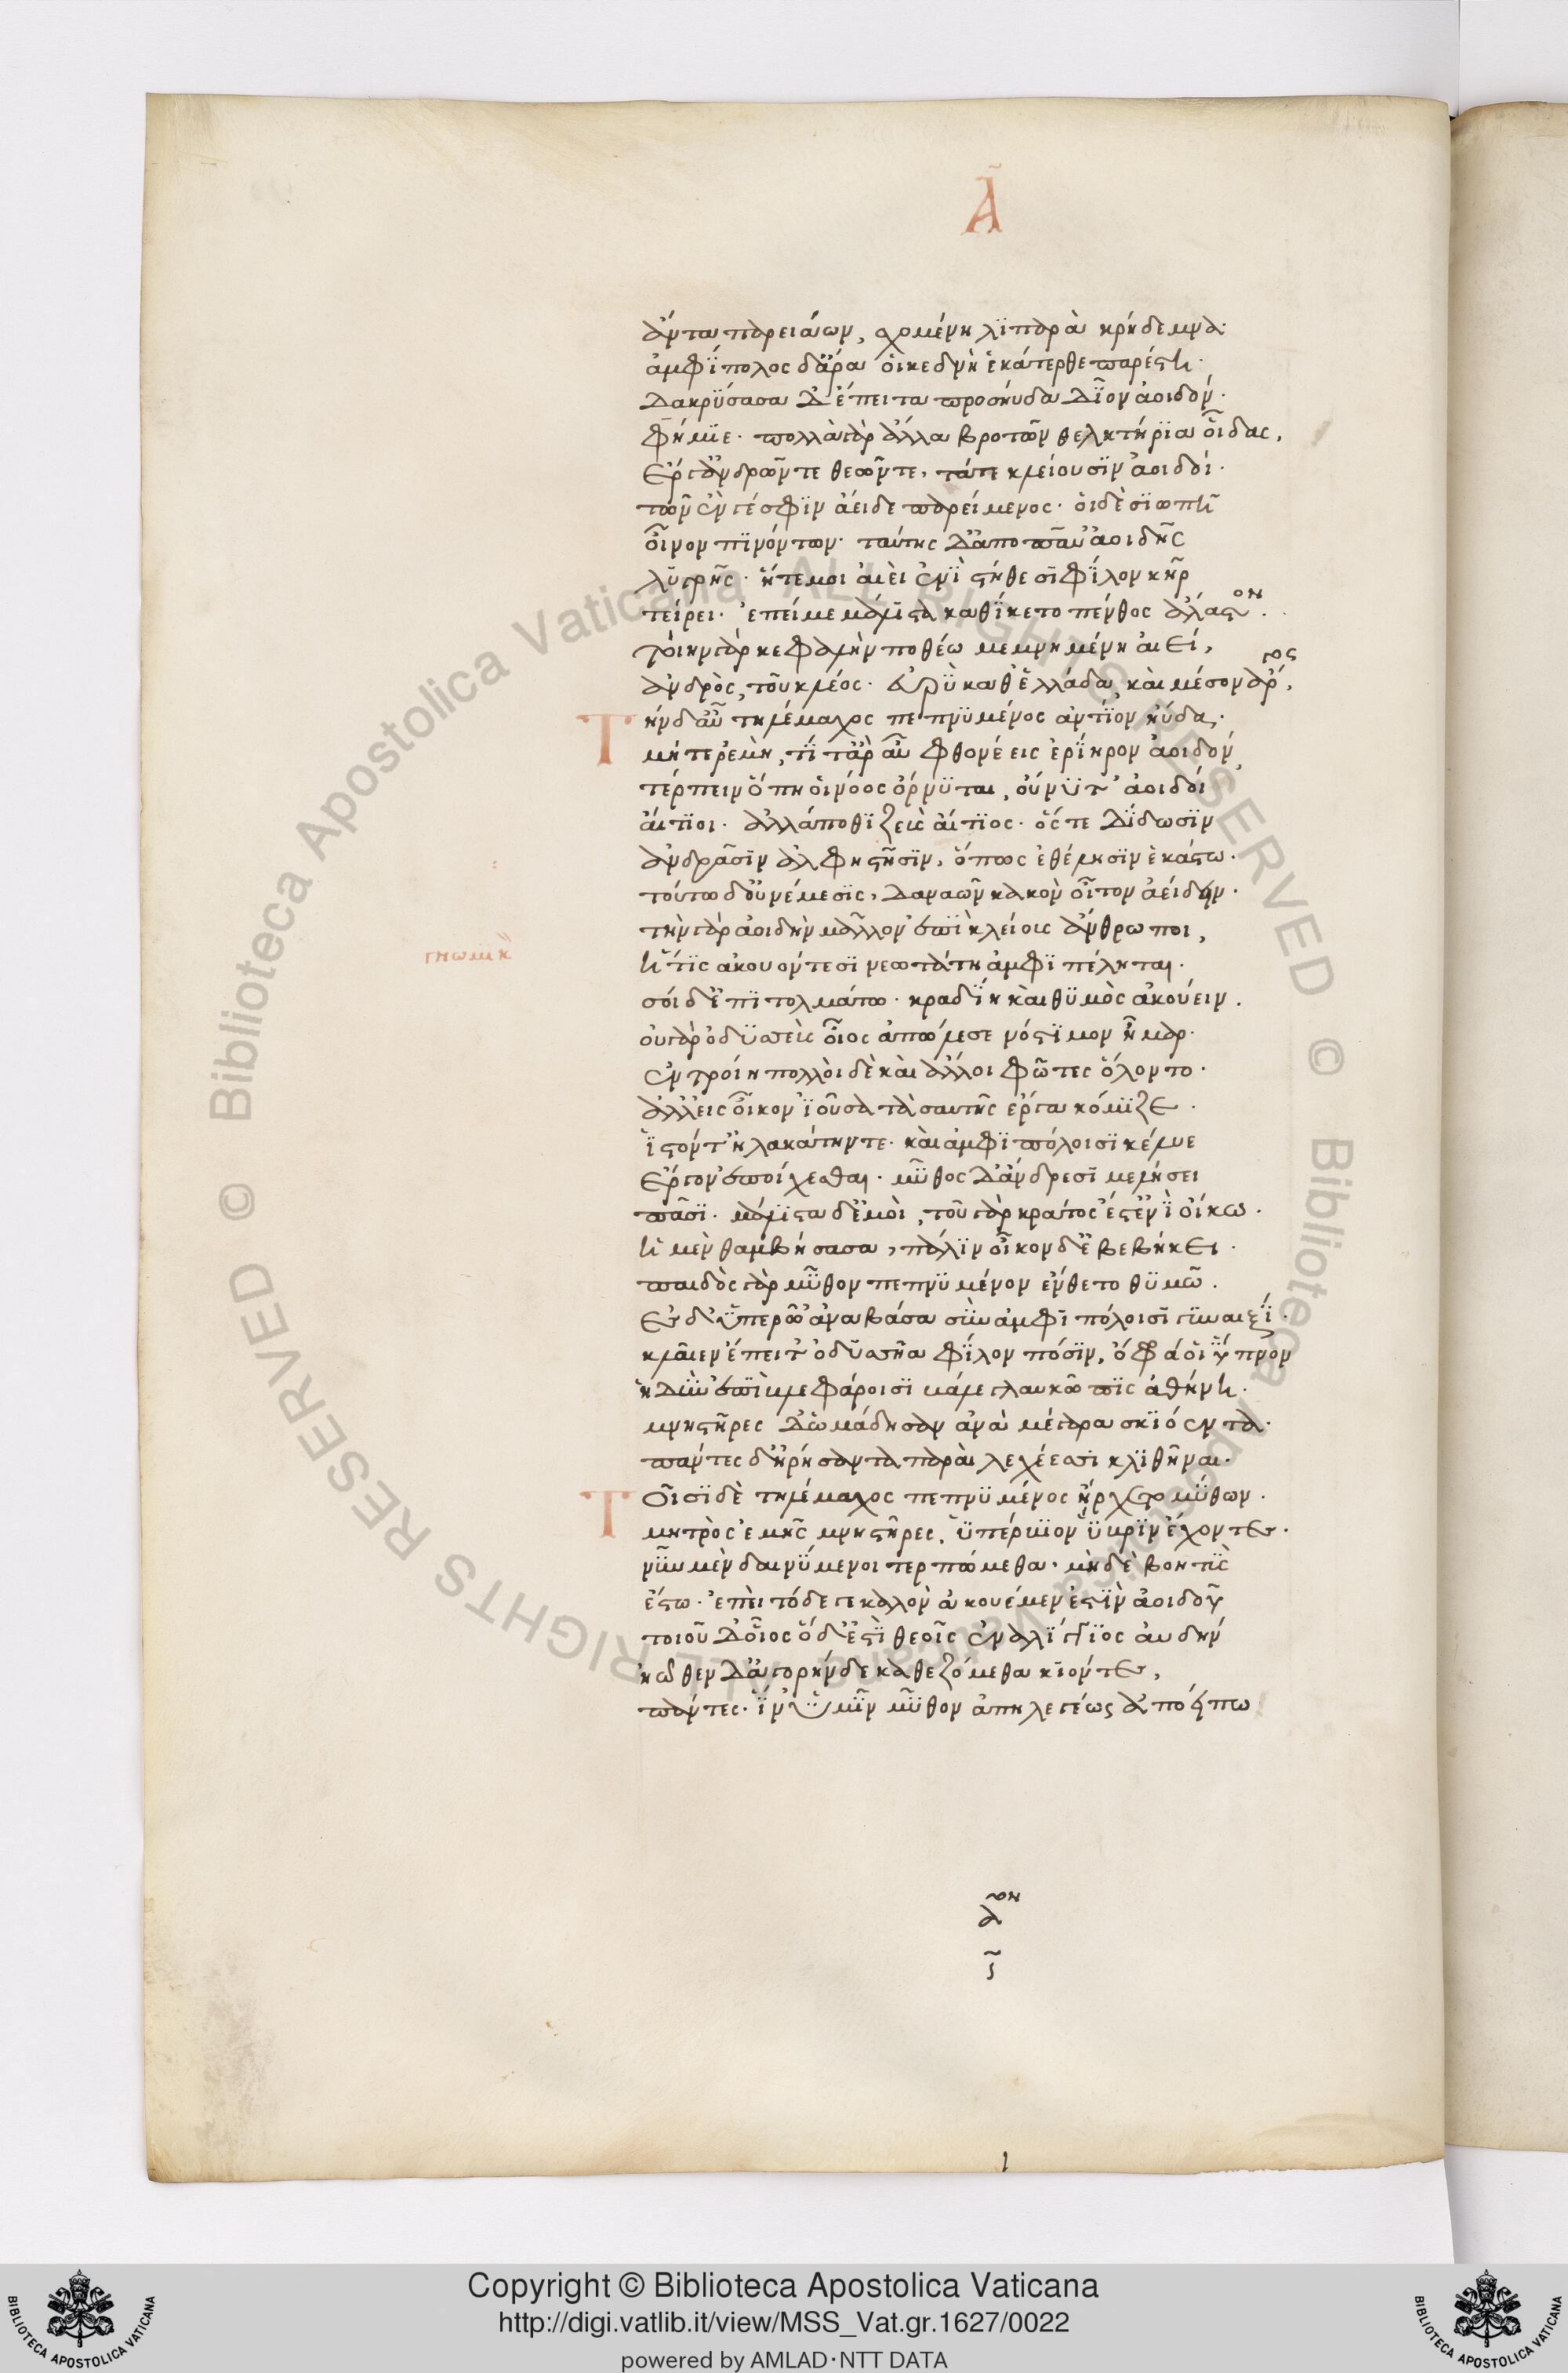 Α
ἄντα παρειάων, σχομένη λϊπαρὰ κρήδεμνα·
ἀμφίπολος δ' ἄρα οἱ κεδνὴ ἑκάτερθε παρέστη·
Δακρύσασα δ' ἔπειτα προσηύδα Δῖον ἀοιδόν·
φήμϊε· πολλὰ γὰρ ἄλλα βροτῶν θελκτήρϊα οἶδας,
ἔργ' ἀνδρῶν τε θεῶν τε, τά τε κλείουσϊν ἀοιδοί·
τῶν ἕν γέ σφϊν ἄειδε παρείμενος· οἱ δὲ σϊωπῇ
οἶνον πϊνόντων· ταύτης δ' ἀποπαύ ἀοιδῆς
λυγρῆς· ἥτέ μοι αἰεὶ ἐνὶ στήθεσϊ φίλον κῆρ
τείρει· ἐπεί με μάλιστα καθΐκετο πένθος ἄλαστον·
τοίην γὰρ κεφαλὴν ποθέω μεμνημένη αἰεί,
ἀνδρὸς, τοῦ κλέος εὐρὺ καθ' ἑλλάδα, καὶ μέσον ἄργος,
Τὴν δ' αὖ τηλέμαχος πεπνϋμένος ἀντΐον ηὔδα·
μῆτερ ἐμὴ, τί τ' ἄρ' αὖ φθονέεις ἐρΐηρον ἀοιδόν,
τέρπειν ὅπη οἱ νόος ὄρνϋται, οὔ νϋ τ' ἀοιδοί
αἴτϊοι· ἀλλά ποθϊ ζεὺς αἴτϊος· ὅς τε δίδωσϊν
ἀνδράσϊν ἀλφηστῆσϊν, ὅπως ἐθέλησϊν ἑκάστω·
τούτω δ' οὐ νέμεσϊς, Δαναῶν κακὸν οἶτον ἀείδειν·
τὴν γὰρ ἀοιδὴν μᾶλλον ἐπϊκλείουσ' ἄνθρωποι,
γνωμικ
ἥ τϊς ἀκουόντεσσϊ νεωτάτη ἀμφϊπέληται·
σοὶ δ' ἐπϊτολμάτω· κραδΐη καὶ θϋμὸς ἀκούειν.
οὐ γὰρ ὀδϋσσεὺς οἶος ἀπώλεσε νόστϊμον ἦμαρ·
ἐν τροίη πολλοὶ δὲ καὶ ἄλλοι φῶτες ὄλοντο·
ἀλλ' εἰς οἶκον ἰοῦσα τὰ σαυτῆς ἔργα κόμϊζε·
ἱστόν τ' ἠλακάτην τε· καὶ ἀμφϊπόλοισϊ κέλευε
ἔργον ἐποίχεσθαι· μῦθος δ' ἄνδρεσϊ μελήσει
πᾶσϊ· μάλιστα δ' ἐμοὶ, τοῦ γὰρ κράτος ἔστ' ἐνὶ οἴκω·
ἡ μὲν θαμβήσασα, πάλϊν οἶκον δὲ βεβήκει·
παιδὸς γὰρ μῦθον πεπνϋμένον ἔνθετο θϋμῶ.
ἐς δ' ὑπερῶ' ἀναβάσα σὺν ἀμφϊπόλοισϊ γϋναιξΐ·
κλαῖεν ἔπειτ' ὀδϋσσῆα φίλον πόσϊν, ὄφρα οἱ ὕπνον
ἡδὺν ἐπὶ βλεφάροισϊ βάλε γλαυκῶπϊς ἀθήνη·
μνηστῆρες δ' ὁμάδησαν ἀνὰ μέγαρα σκϊόεντα·
πάντες δ' ἠρήσαντο παραὶ λεχέεσσϊ κλϊθῆναι·
Τοῖσϊ δὲ τηλέμαχος πεπνϋμένος ἤρχετο μύθων·
μητρὸς ἐμῆς μνηστῆρες, ὑπέρβϊον ὕβρϊν ἔχοντες·
νῦν μὲν δαινϋμενοι τερπώμεθα· μὴ δὲ βοητὺς
ἔστω· ἐπεὶ τόδε γε καλὸν ἀκουέμεν ἐστὶν ἀοιδοῦ
τοιοῦδ' οἷος ὅδ' ἐστὶ θεοῖς ἐναλΐγκϊος αὐδήν
ἠῶθεν δ' ἀγορήνδε καθεζόμεθα κϊόντες,
πάντες· ἵν' ὑμῖν μῦθον ἀπηλεγέως ἀποείπω